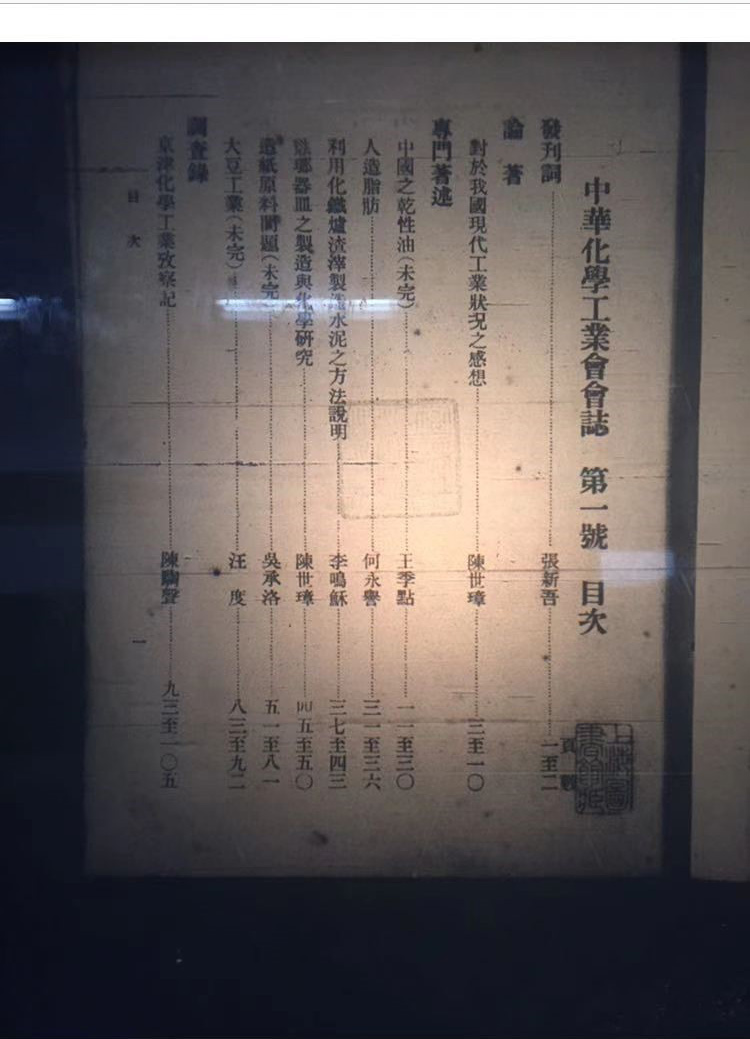 中華化學工業會會誌　第一號　目次
頁數
發刊詞……張新吾……一至二
論著
對於我國現代工業狀況之感想……陳世璋……三至一〇
專門著述
中國之乾性油(未完)……王季點……一一至三〇
人造脂肪……何永譽……三一至三六
利用化鐵爐渣滓製造水泥之方法說明……李鳴龢……三七至四三
琺瑯器皿之製造與化學研究……陳世璋……四五至五〇
造紙原料問題(未完)……吳承洛……五一至八一
大豆工業(未完)……汪度……八三至九二
調查錄
京津化學工業攷察記……陳陶聲……九三至一〇五
目次
一